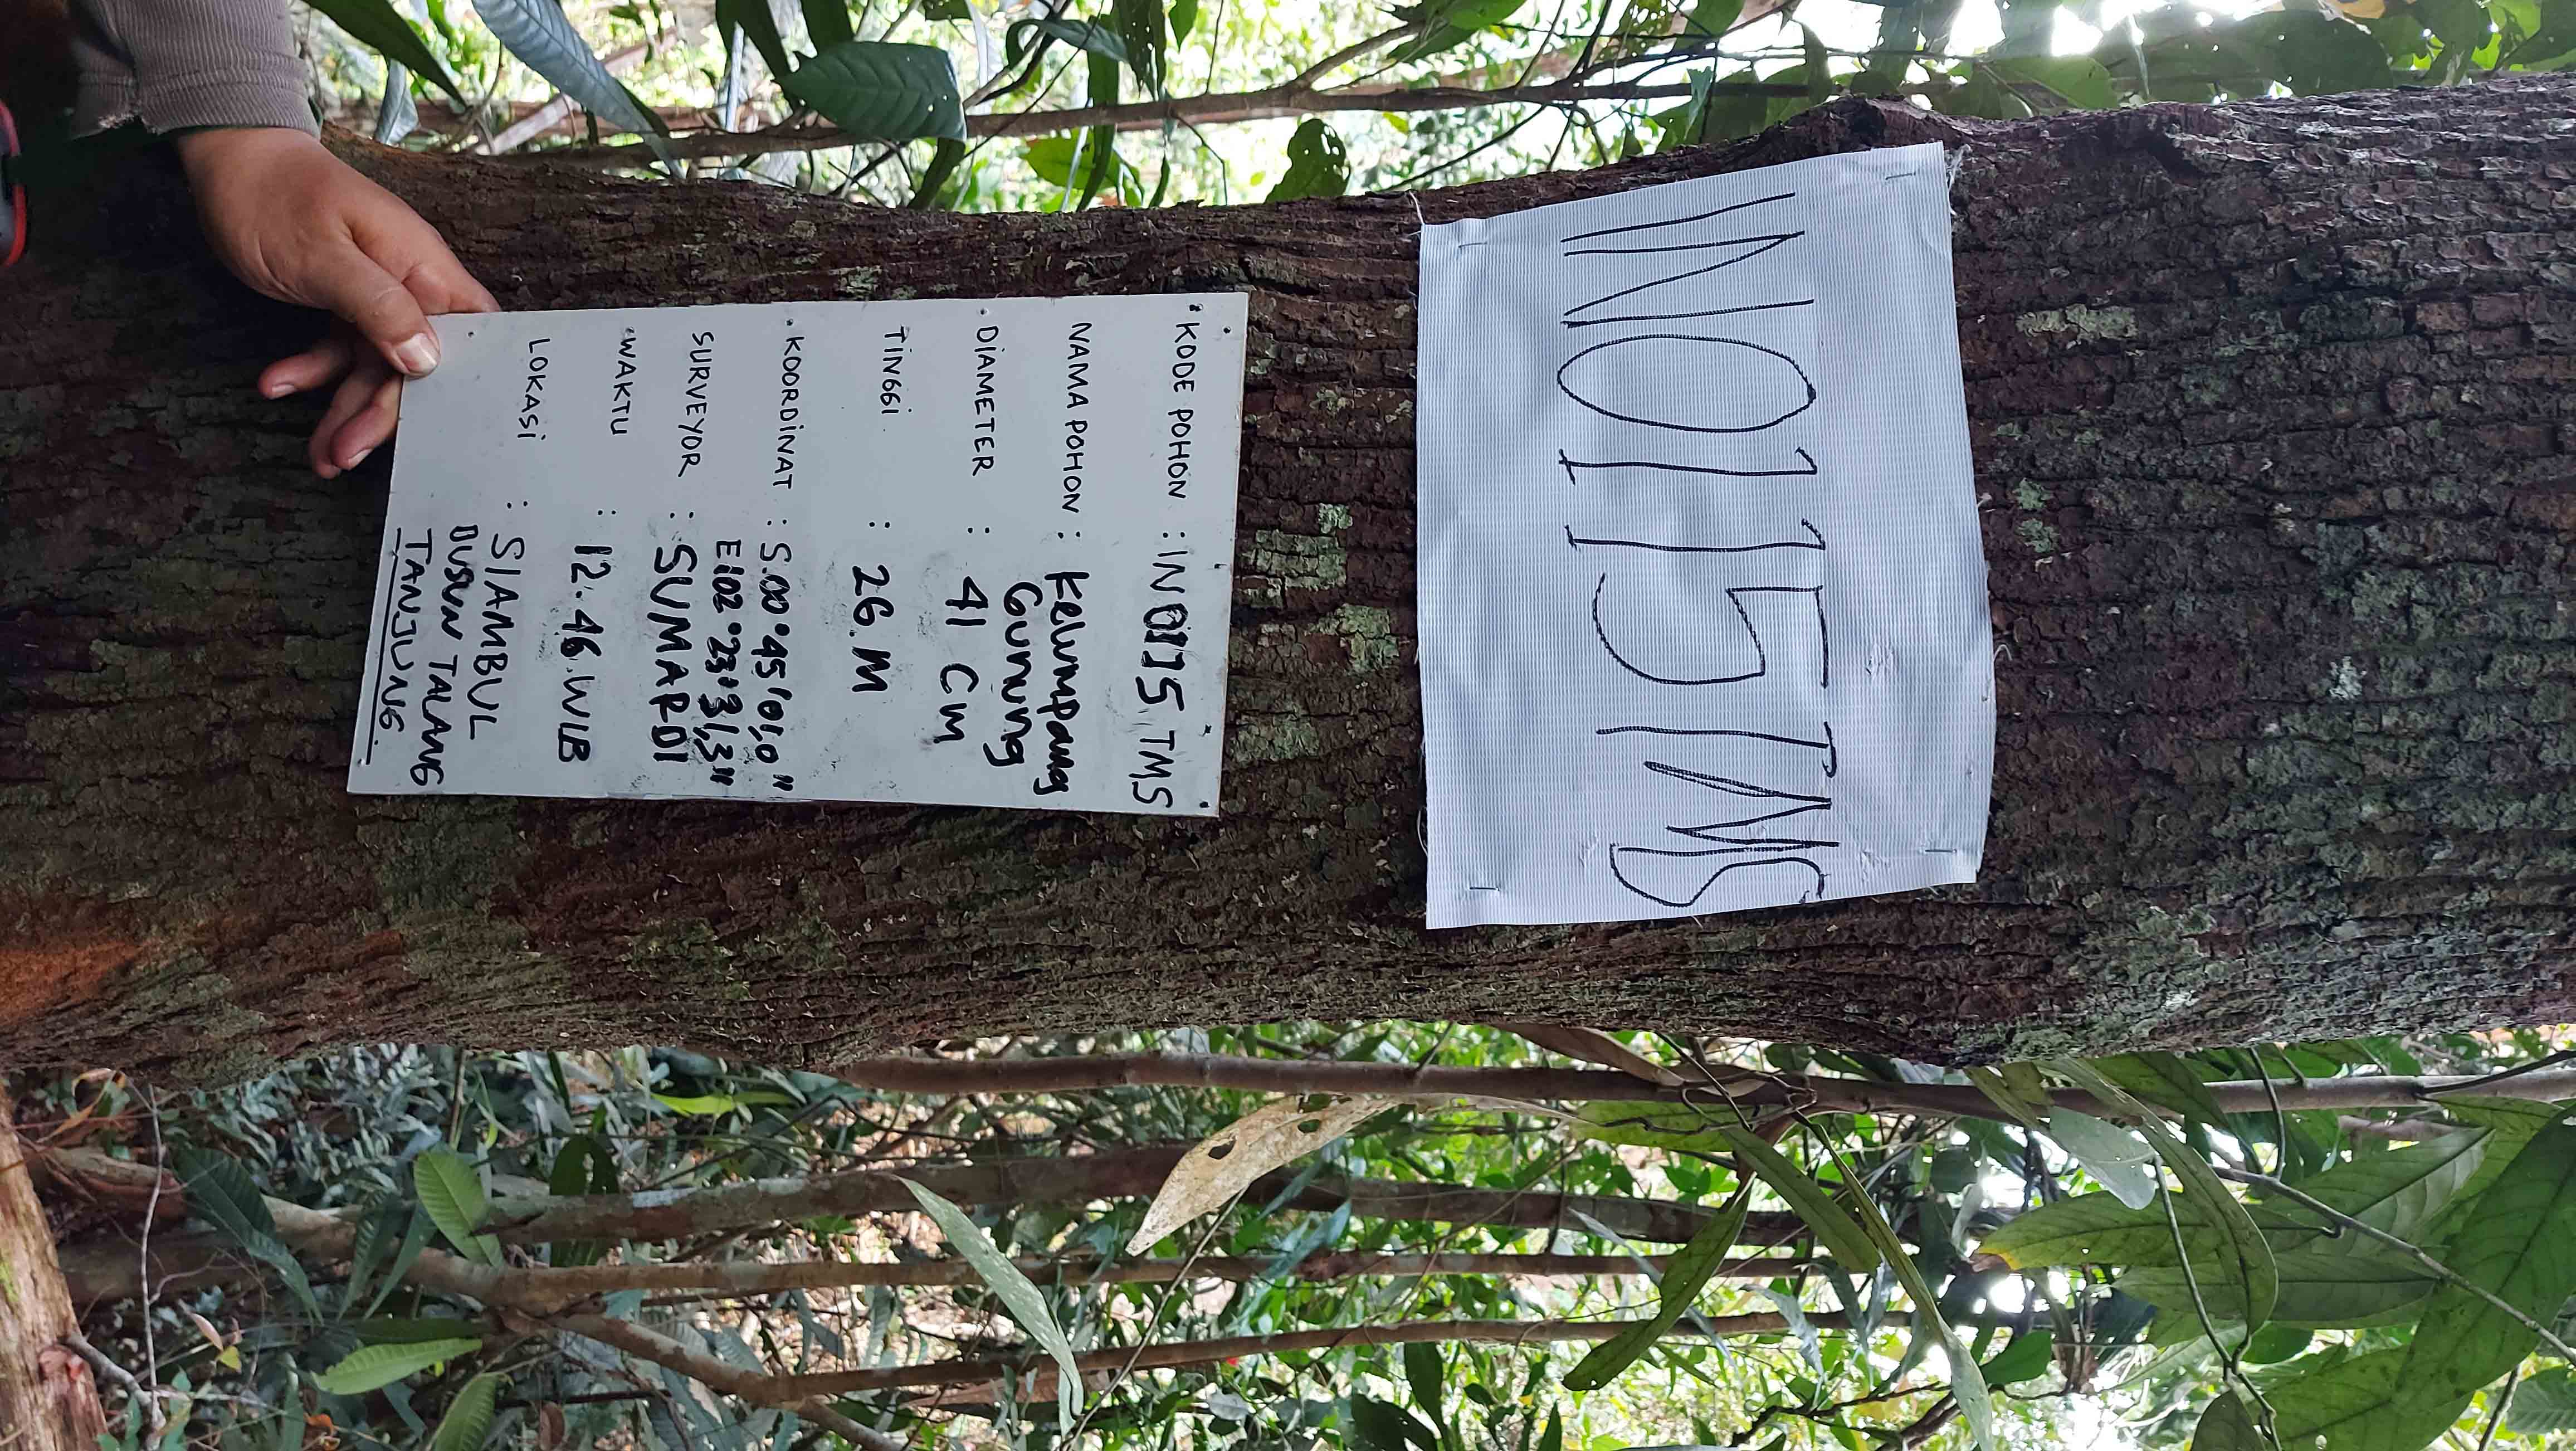 IN0115TMS
KODE POHON : IN0115 TMS
NAMA POHON : Kelumpang
Gunung
DIAMETER : 41 Cm
TINGGI : 26.M
KOORDINAT : S.00°45'01,0"
E102°23'31,3"
SURVEYOR : SUMARDI
WAKTU : 12.46.WIB
LOKASI : SIAMBUL
DUSUN TALANG
TANJUNG.